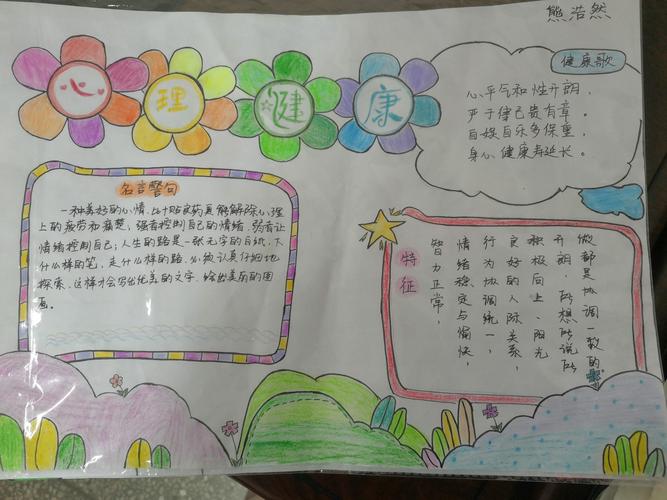 熊浩然
心理健康
健康歌
心平气和性开朗，
严于律己贵有章。
自娱自乐多保重，
身心健康寿延长。
名言警句
一种美好的心情，比十贴良药更能解除心理
上的疲劳和痛楚，强者控制自己的情绪，弱者让
情绪控制自己；人生的路是一张无字的白纸，下
什么样的笔，走什么样的路，必须认真仔细地
探索，这样才会写出优美的文字，绘出美丽的图
画。
特征
智力正常，
情绪稳定与愉快，
行为协调统一，
良好的人际关系，
积极向上、阳光
开朗，所想所说所
做都是协调一致的